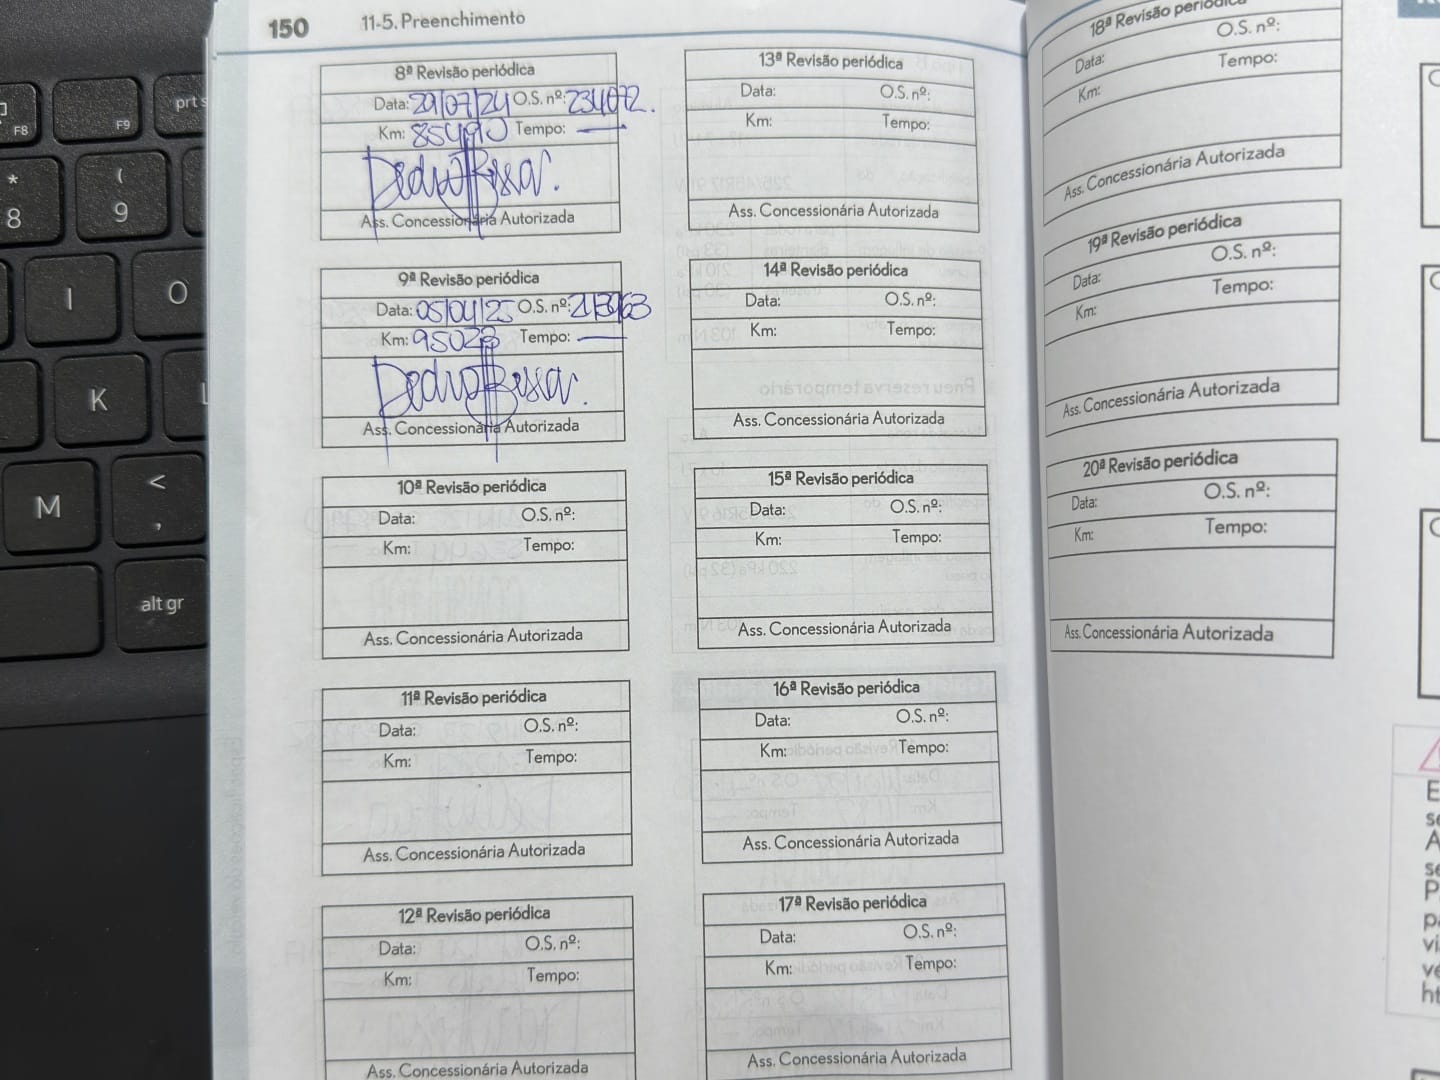 150 11-5. Preenchimento
8ª Revisão periódica
Data: 29/07/24 O.S. nº: 234072.
Km: 85490 Tempo: —
Ass. Concessionária Autorizada
9ª Revisão periódica
Data: 05/04/25 O.S. nº:
Km: 95028 Tempo: —
Ass. Concessionária Autorizada
10ª Revisão periódica
Data: O.S. nº:
Km: Tempo:
Ass. Concessionária Autorizada
11ª Revisão periódica
Data: O.S. nº:
Km: Tempo:
Ass. Concessionária Autorizada
12ª Revisão periódica
Data: O.S. nº:
Km: Tempo:
Ass. Concessionária Autorizada
13ª Revisão periódica
Data: O.S. nº:
Km: Tempo:
Ass. Concessionária Autorizada
14ª Revisão periódica
Data: O.S. nº:
Km: Tempo:
Ass. Concessionária Autorizada
15ª Revisão periódica
Data: O.S. nº:
Km: Tempo:
Ass. Concessionária Autorizada
16ª Revisão periódica
Data: O.S. nº:
Km: Tempo:
Ass. Concessionária Autorizada
17ª Revisão periódica
Data: O.S. nº:
Km: Tempo:
Ass. Concessionária Autorizada
18ª Revisão periódica
Data: O.S. nº:
Km: Tempo:
Ass. Concessionária Autorizada
19ª Revisão periódica
Data: O.S. nº:
Km: Tempo:
Ass. Concessionária Autorizada
20ª Revisão periódica
Data: O.S. nº:
Km: Tempo:
Ass. Concessionária Autorizada
F8 F9 prt s
* 8 ( 9
I O
K L
M < ,
alt gr